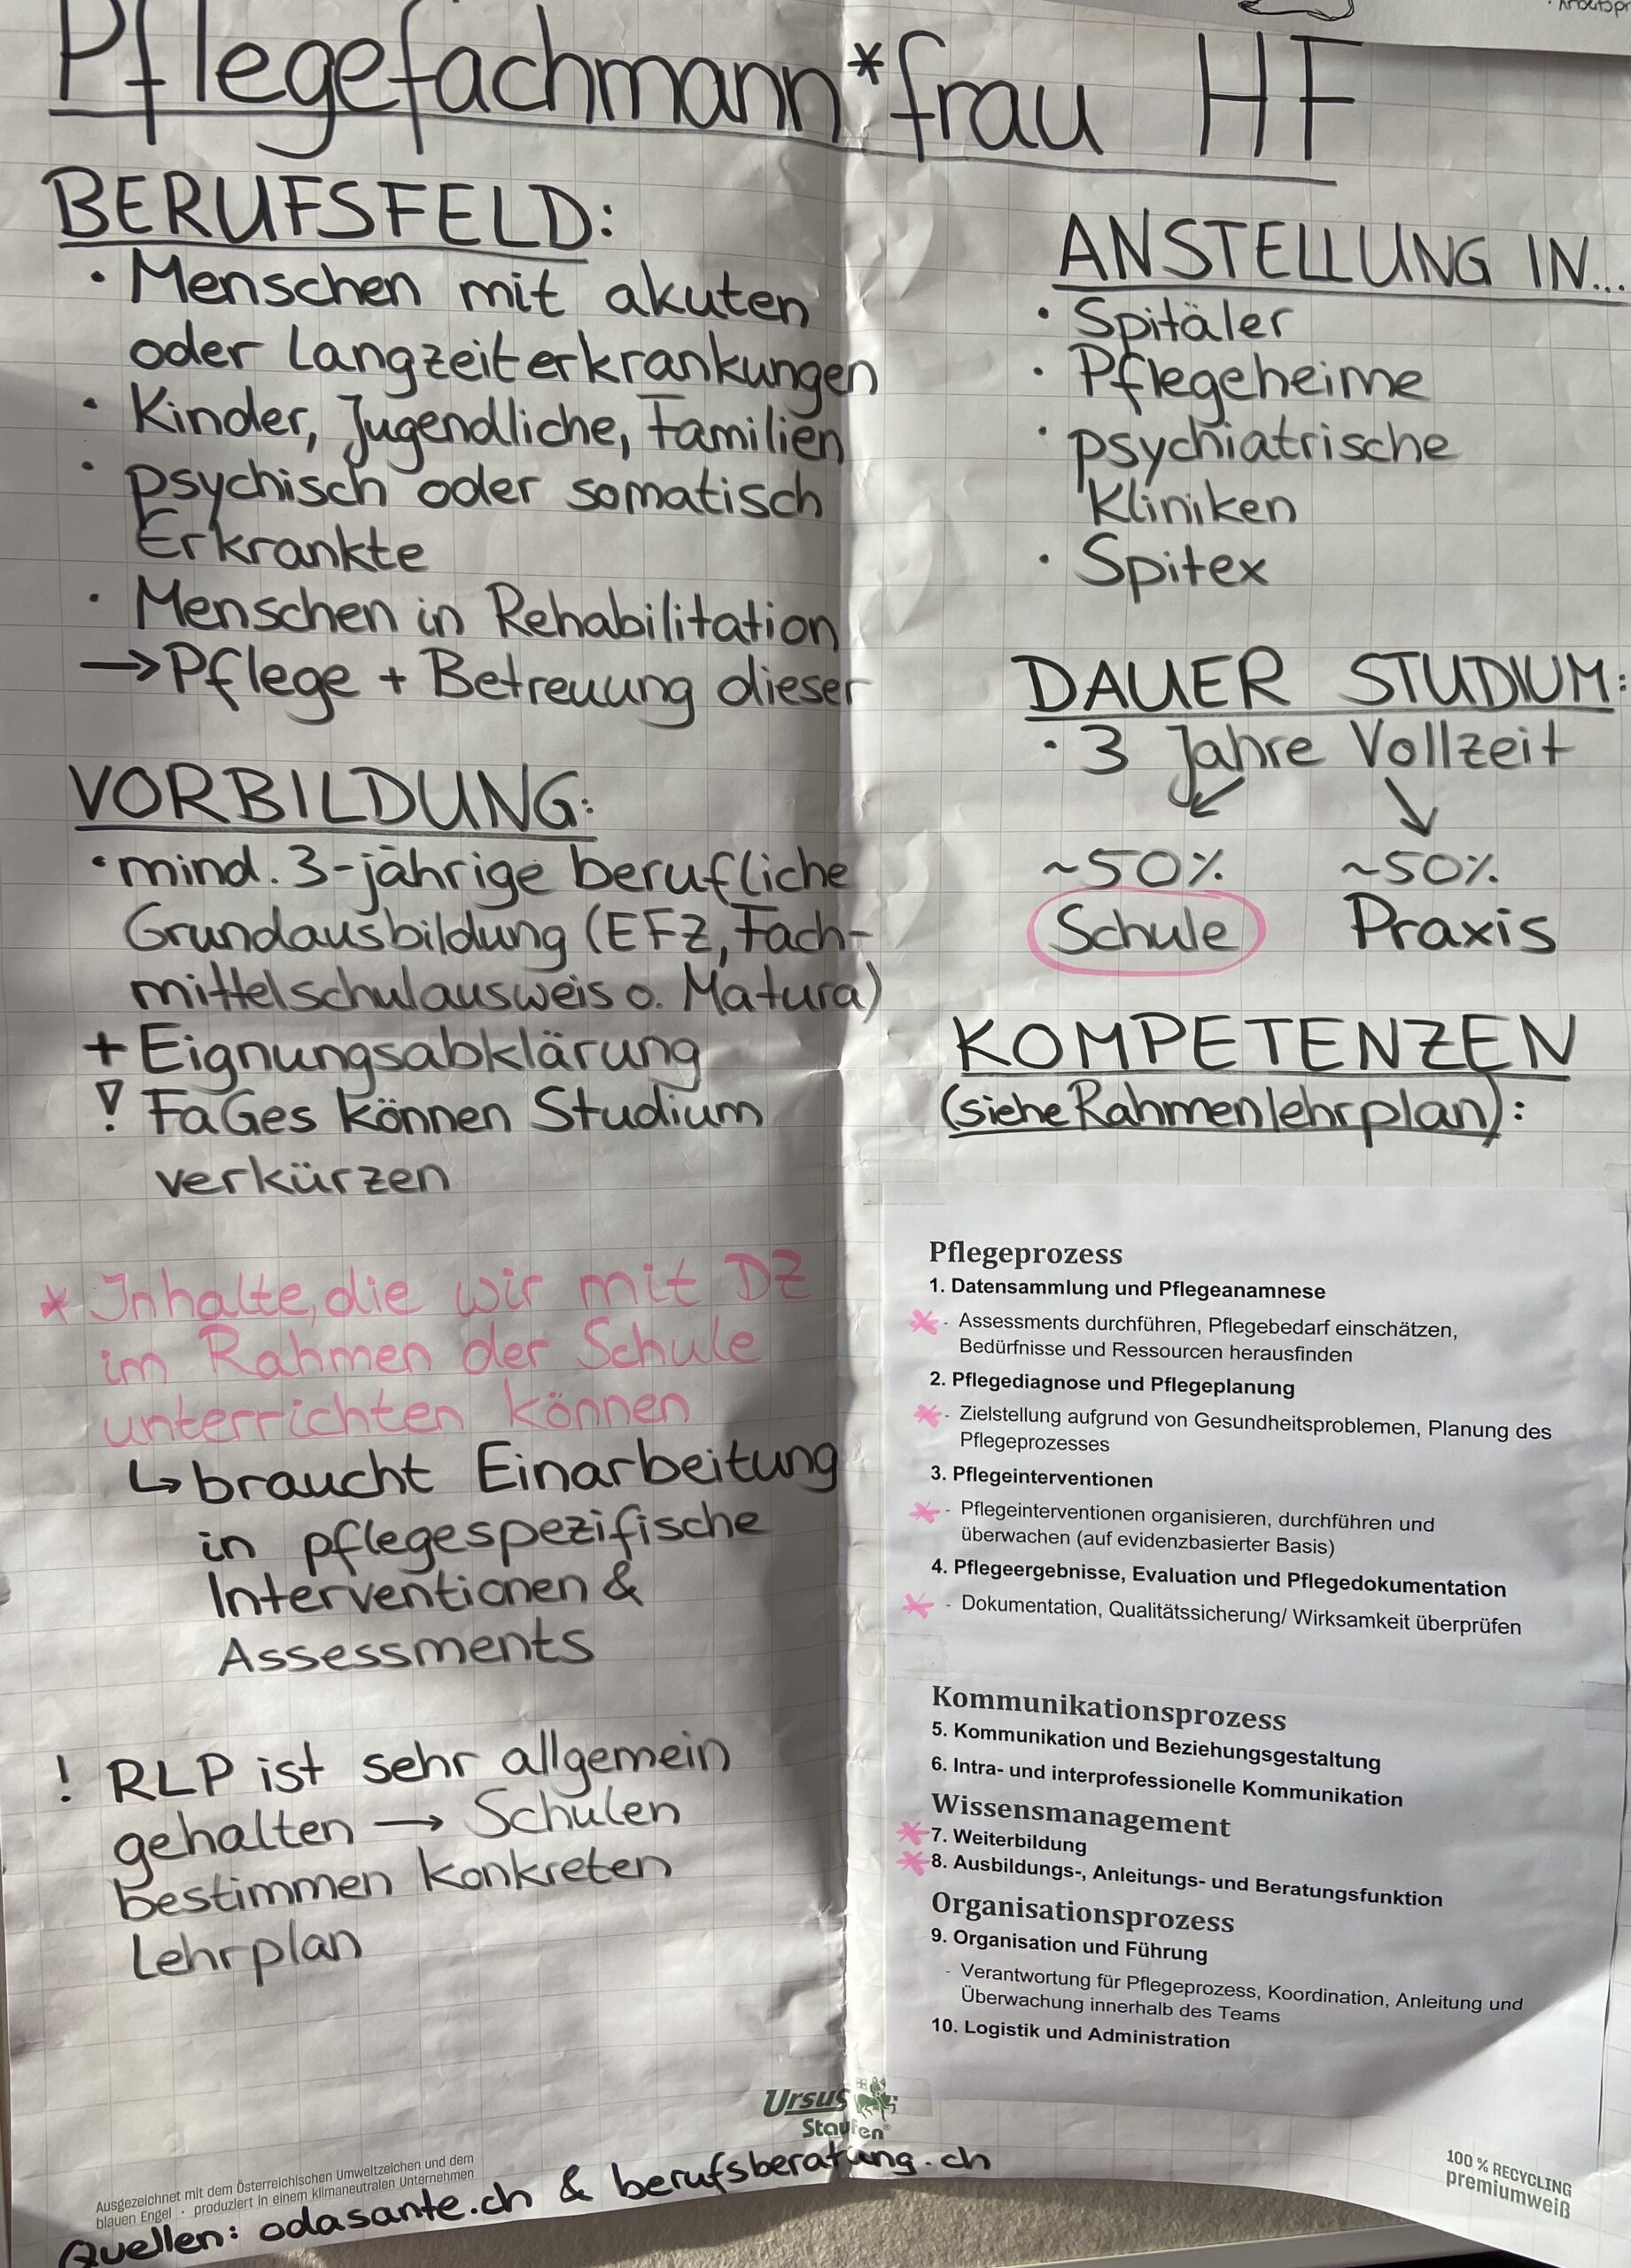 Pflegefachmann*frau HF
BERUFSFELD:
• Menschen mit akuten
oder Langzeiterkrankungen
• Kinder, Jugendliche, Familien
• psychisch oder somatisch
Erkrankte
• Menschen in Rehabilitation
→ Pflege + Betreuung dieser
VORBILDUNG:
• mind. 3-jährige berufliche
Grundausbildung (EFZ, Fach-
mittelschulausweis o. Matura)
+ Eignungsabklärung
! FaGes können Studium
verkürzen
* Inhalte, die wir mit DZ
im Rahmen der Schule
unterrichten können
↳ braucht Einarbeitung
in pflegespezifische
Interventionen &
Assessments
! RLP ist sehr allgemein
gehalten → Schulen
bestimmen konkreten
Lehrplan
ANSTELLUNG IN...
• Spitäler
• Pflegeheime
• psychiatrische
Kliniken
• Spitex
DAUER STUDIUM:
• 3 Jahre Vollzeit
~50% ~50%
Schule Praxis
KOMPETENZEN
(siehe Rahmenlehrplan):
Pflegeprozess
1. Datensammlung und Pflegeanamnese
* - Assessments durchführen, Pflegebedarf einschätzen,
Bedürfnisse und Ressourcen herausfinden
2. Pflegediagnose und Pflegeplanung
* - Zielstellung aufgrund von Gesundheitsproblemen, Planung des
Pflegeprozesses
3. Pflegeinterventionen
* - Pflegeinterventionen organisieren, durchführen und
überwachen (auf evidenzbasierter Basis)
4. Pflegeergebnisse, Evaluation und Pflegedokumentation
* - Dokumentation, Qualitätssicherung/ Wirksamkeit überprüfen
Kommunikationsprozess
5. Kommunikation und Beziehungsgestaltung
6. Intra- und interprofessionelle Kommunikation
Wissensmanagement
* 7. Weiterbildung
* 8. Ausbildungs-, Anleitungs- und Beratungsfunktion
Organisationsprozess
9. Organisation und Führung
- Verantwortung für Pflegeprozess, Koordination, Anleitung und
Überwachung innerhalb des Teams
10. Logistik und Administration
Ursus
Staufen
Ausgezeichnet mit dem Österreichischen Umweltzeichen und dem
blauen Engel · produziert in einem klimaneutralen Unternehmen
100 % RECYCLING
premiumweiß
Quellen: odasante.ch & berufsberatung.ch